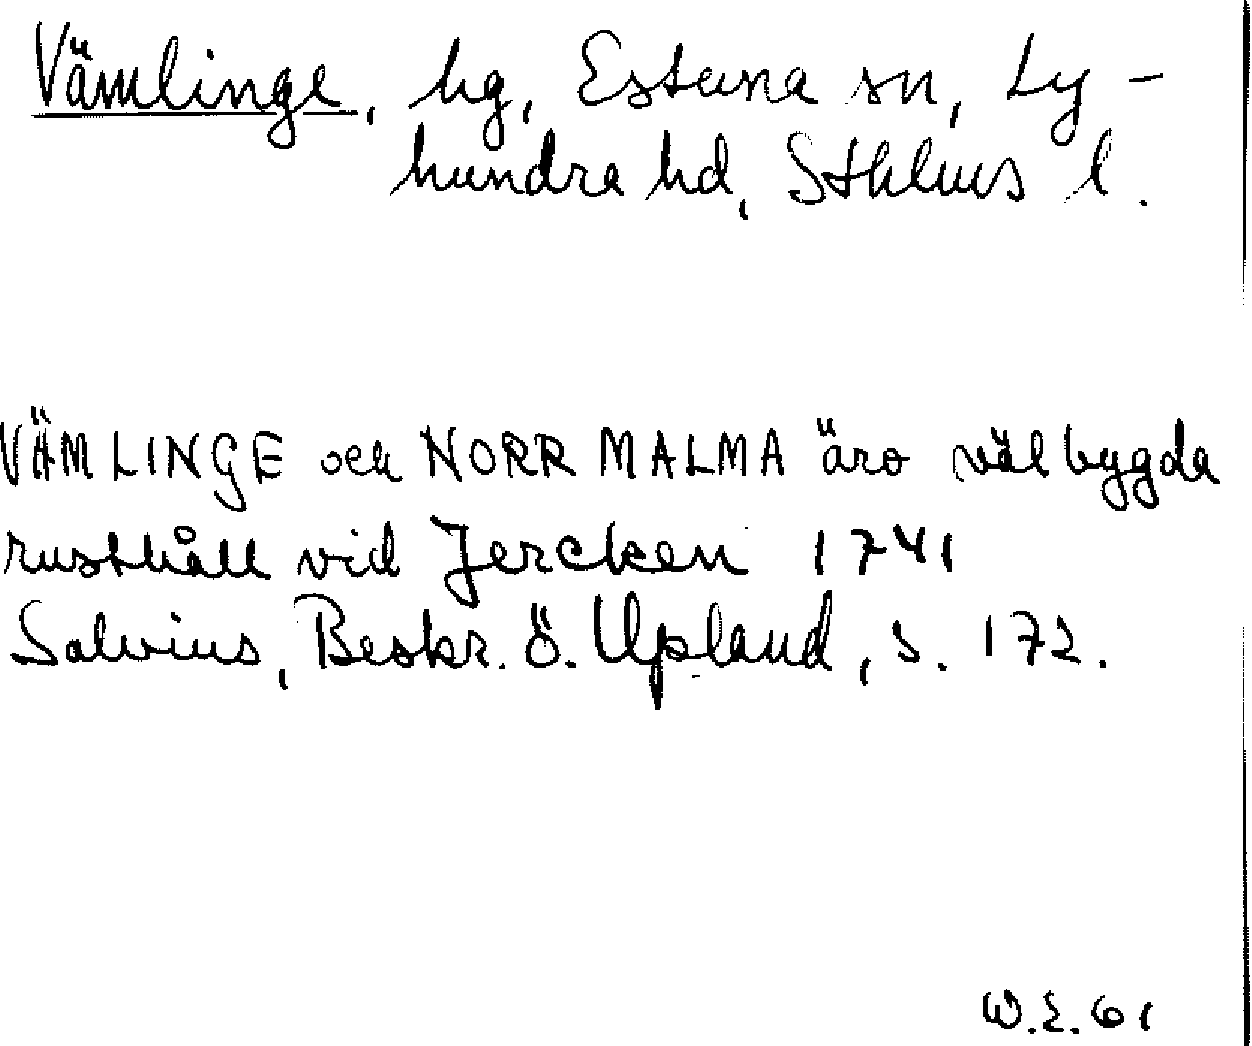 Vämlinge, hg, Estuna sn, Ly-
hundra hd, Sthlms l.
VÄMLINGE och NORR MALMA äro välbygda
rusthåll vid Jercken 1741
Salvius, Beskr. ö. Upland, s. 172.
W.E. 61